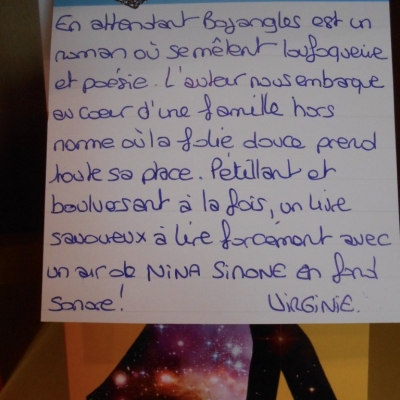 En attendant Bojangles est un
roman où se mêlent loufoquerie
et poésie. L'auteur nous embarque
au coeur d'une famille hors
norme où la folie douce prend
toute sa place. Pétillant et
bouleversant à la fois, un livre
savoureux à lire forcément avec
un air de NINA SIMONE en fond
sonore! VIRGINIE.